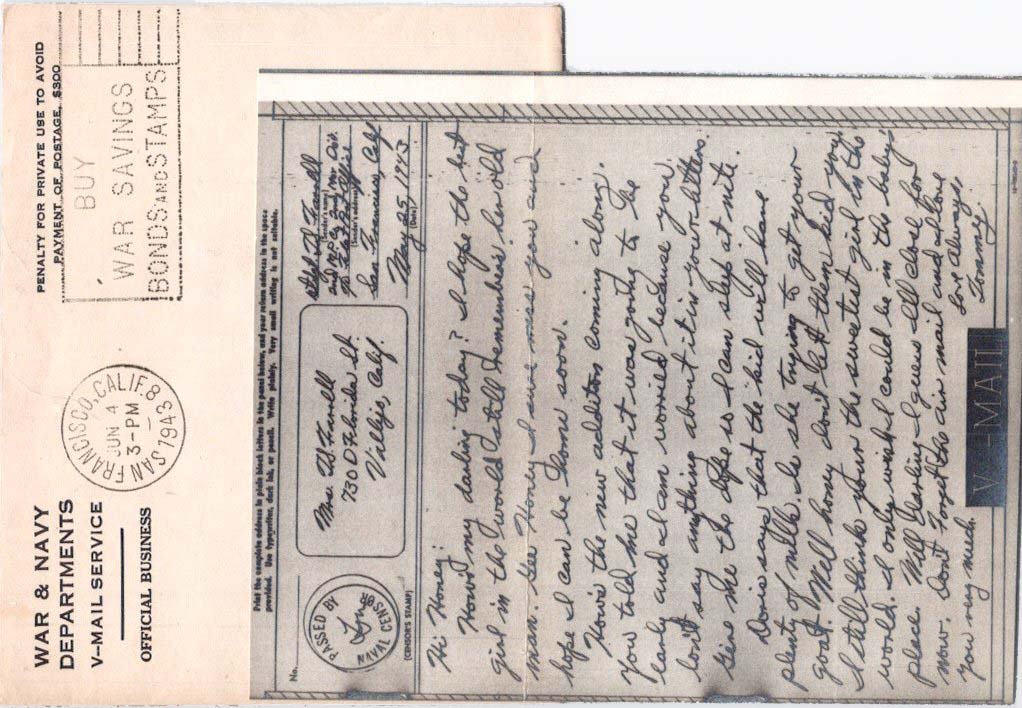 WAR & NAVY
DEPARTMENTS
V-MAIL SERVICE
OFFICIAL BUSINESS
SAN FRANCISCO, CALIF. 8
JUN 4
3-PM
1943
BUY
WAR SAVINGS
BONDS AND STAMPS
PENALTY FOR PRIVATE USE TO AVOID
PAYMENT OF POSTAGE, $300
Print the complete address in plain block letters in the panel below, and your return address in the space
provided. Use typewriter, dark ink, or pencil. Write plainly. Very small writing is not suitable.
No.
PASSED BY
NAVAL CENSOR
(CENSOR'S STAMP)
Mrs.
730 D Florida St.
Vallejo, Calif.
(Sender's name)
(Sender's address)
San Francisco, Calif
May 25, 1943
(Date)
Hi Honey:
How's my darling today? I hope the best
girl in the world still remembers her old
man. Gee Honey I sure miss you and
hope I can be home soon.
How's the new addition coming along.
You told me that it was going to be
early and I am worried because you
don't say anything about it in your letters.
Give me the dope so I can sleep at nite.
Doris says that the kid will have
plenty of milk. Is she trying to get your
goat. Well honey don't let them kid you
I still think your the sweetest girl in the
world. I only wish I could be in the baby's
place. Well Darling I guess I'll close for
now. Don't forget the air mail and I love
you very much.
Love Always
Tommy
V--MAIL